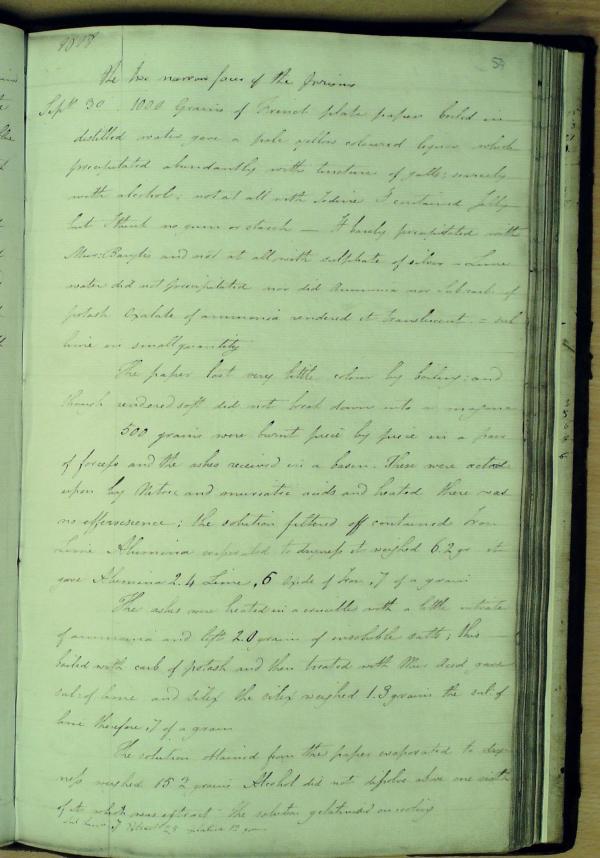 1818
53
the two narrow faces of the prisms
Sept 30 1000 Grains of French plate paper boiled in
distilled water gave a pale yellow coloured liquor which
precipitated abundantly with tincture of galls; scarcely
with alcohol; not at all with Iodine It contained Jelly
but I think no gum or starch — It barely precipitated with
Mur: Barytes and not at all with sulphate of silver – Lime
water did not precipitated nor did Ammonia nor Subcarb of
potash Oxalate of ammonia rendered it translucent. = sul
lime in small quantity
The paper lost very little colour by boiling: and
though rendered soft did not break down into a magma
500 grains were burnt piece by piece in a pair
of forceps and the ashes received in a basin. These were acted
upon by Nitric and muriatic acids and heated there was
no effervescence; the solution filtered off contained Iron
Lime Alumina evaporated to dryness it weighed 6.2 gr it
gave Alumina 2.4 Lime ,6 Oxide of Iron ,7 of a grain
The ashes were heated in a crucible with a little nitrate
of ammonia and left 2.0 grains of insoluble salts; this
boiled with carb of potash and then treated with Mur Acid gave
sul: of lime and silex the silex weighed 1.3 grains the sul. of
lime therefore ,7 of a grain
The solution obtained from the paper evaporated to dry
ness weighed 15.2 grains Alcohol did not dissolve above one sixth
of it which was extract The solution gelatinised on cooling